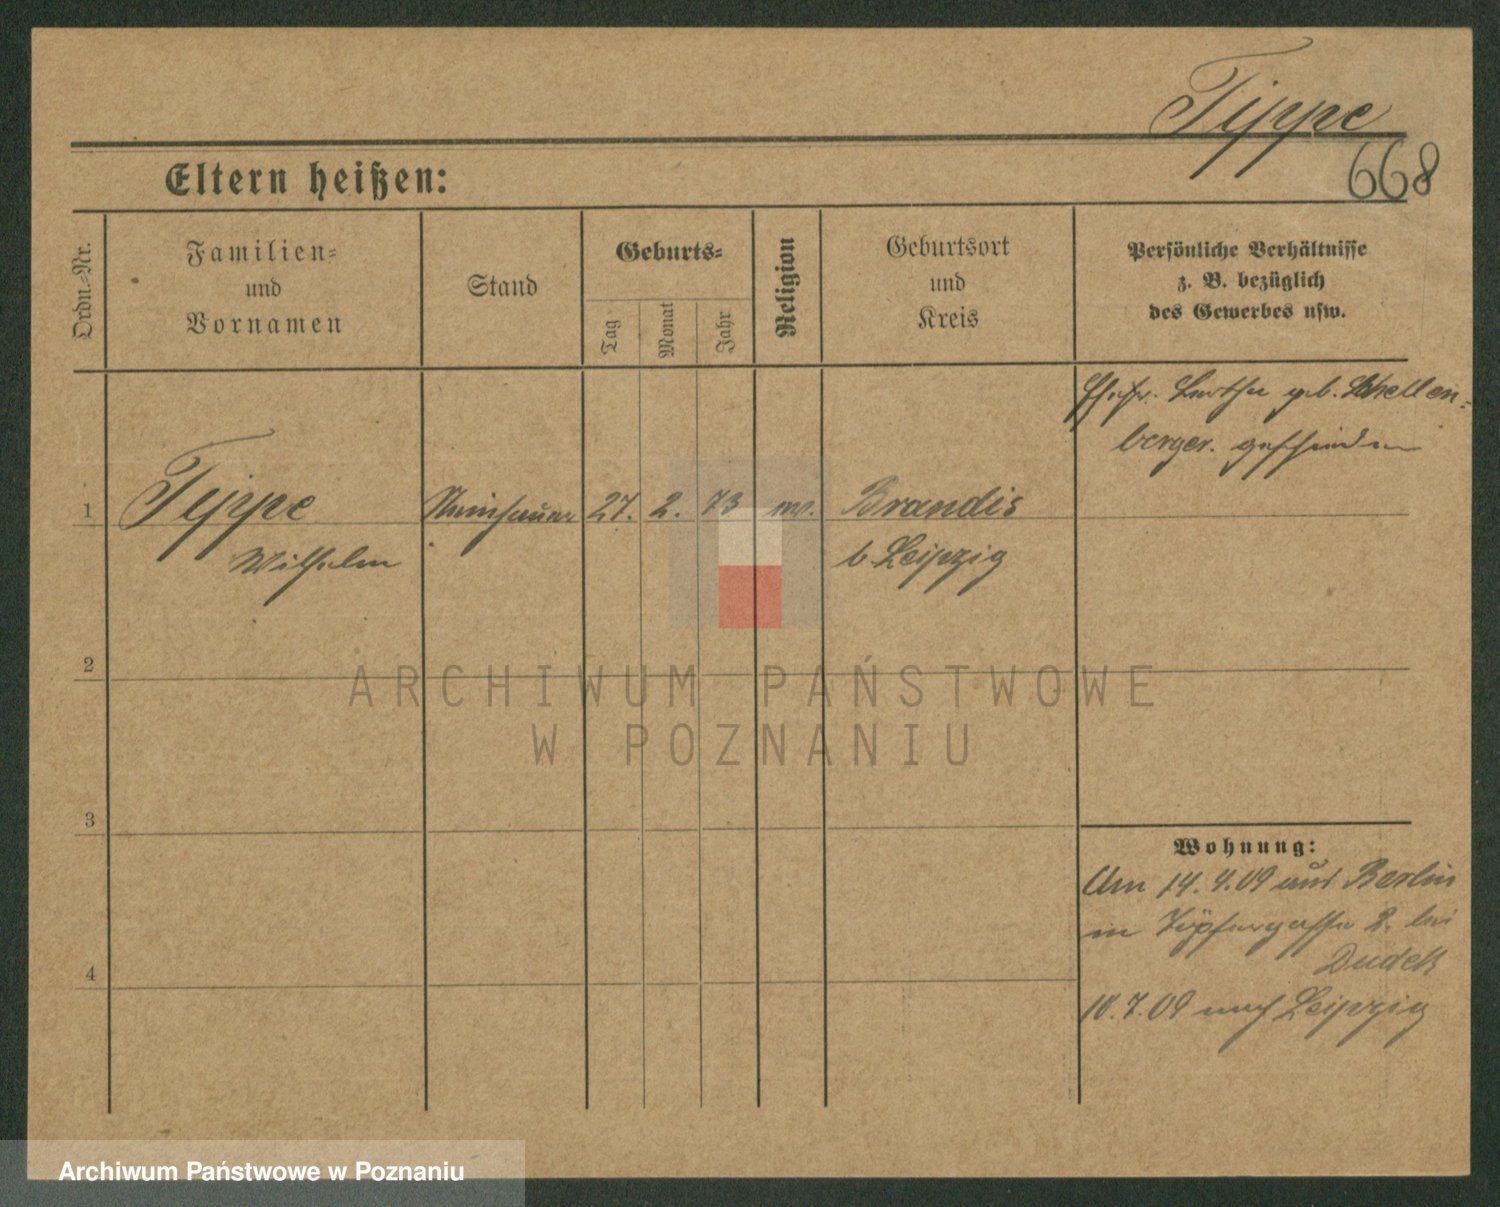 Tippe
668
Eltern heißen:
Ordn.-Nr.
Familien-
und
Vornamen
Stand
Geburts-
Tag
Monat
Jahr
Religion
Geburtsort
und
Kreis
Persönliche Verhältnisse
z. B. bezüglich
des Gewerbes usw.
geb. Schellen-
berger. geschieden
1
Tippe
Steinhauer
27.
2.
73
Brandis
Wilhelm
b. Leipzig
2
3
4
Wohnung:
Am 14.4.09 aus Berlin
in Töpfergasse 2. bei
Dudek
10.7.09 nach Leipzig
ARCHIWUM PAŃSTWOWE
W POZNANIU
Archiwum Państwowe w Poznaniu